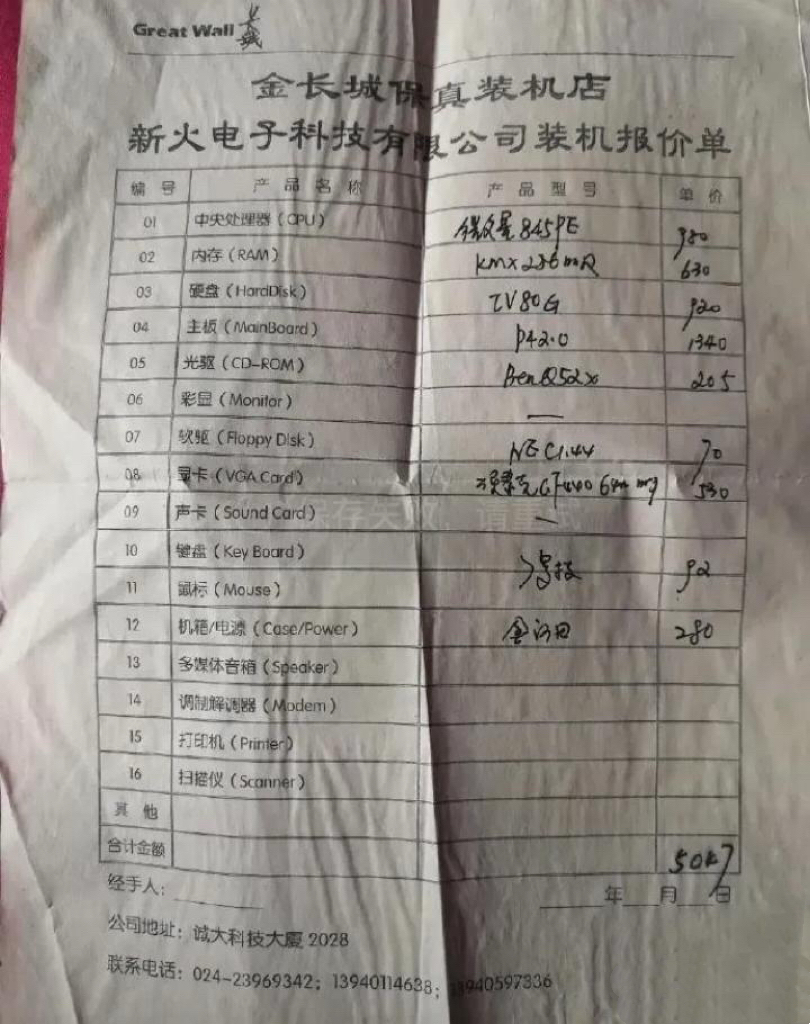 Great Wall
金长城保真装机店
新火电子科技有限公司装机报价单
编号 产品名称 产品型号 单价
01 中央处理器(CPU) 845PE 980
02 内存(RAM) kmx256m 630
03 硬盘(HardDisk) 80G 920
04 主板(MainBoard) P42.0 1340
05 光驱(CD-ROM) BenQ52x 205
06 彩显(Monitor) —
07 软驱(Floppy Disk) NEC1.44 70
08 显卡(VGA Card) 440 64m 530
09 声卡(Sound Card) —
10 键盘(Key Board)
92
11 鼠标(Mouse)
12 机箱/电源(Case/Power) 金河田 280
13 多媒体音箱(Speaker)
14 调制解调器(Modem)
15 打印机(Printer)
16 扫描仪(Scanner)
其他
合计金额 5047
经手人: 年 月 日
公司地址: 诚大科技大厦 2028
联系电话: 024-23969342; 13940114638; 13940597336